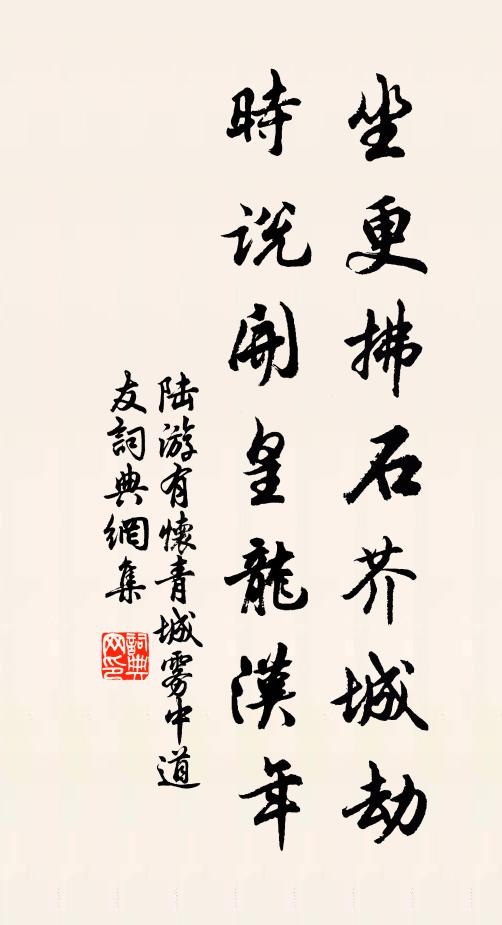 坐更拂石芥城劫
時说開皇龍漢年
陆游有懷青城雾中道
友詞典網集
詞典網印